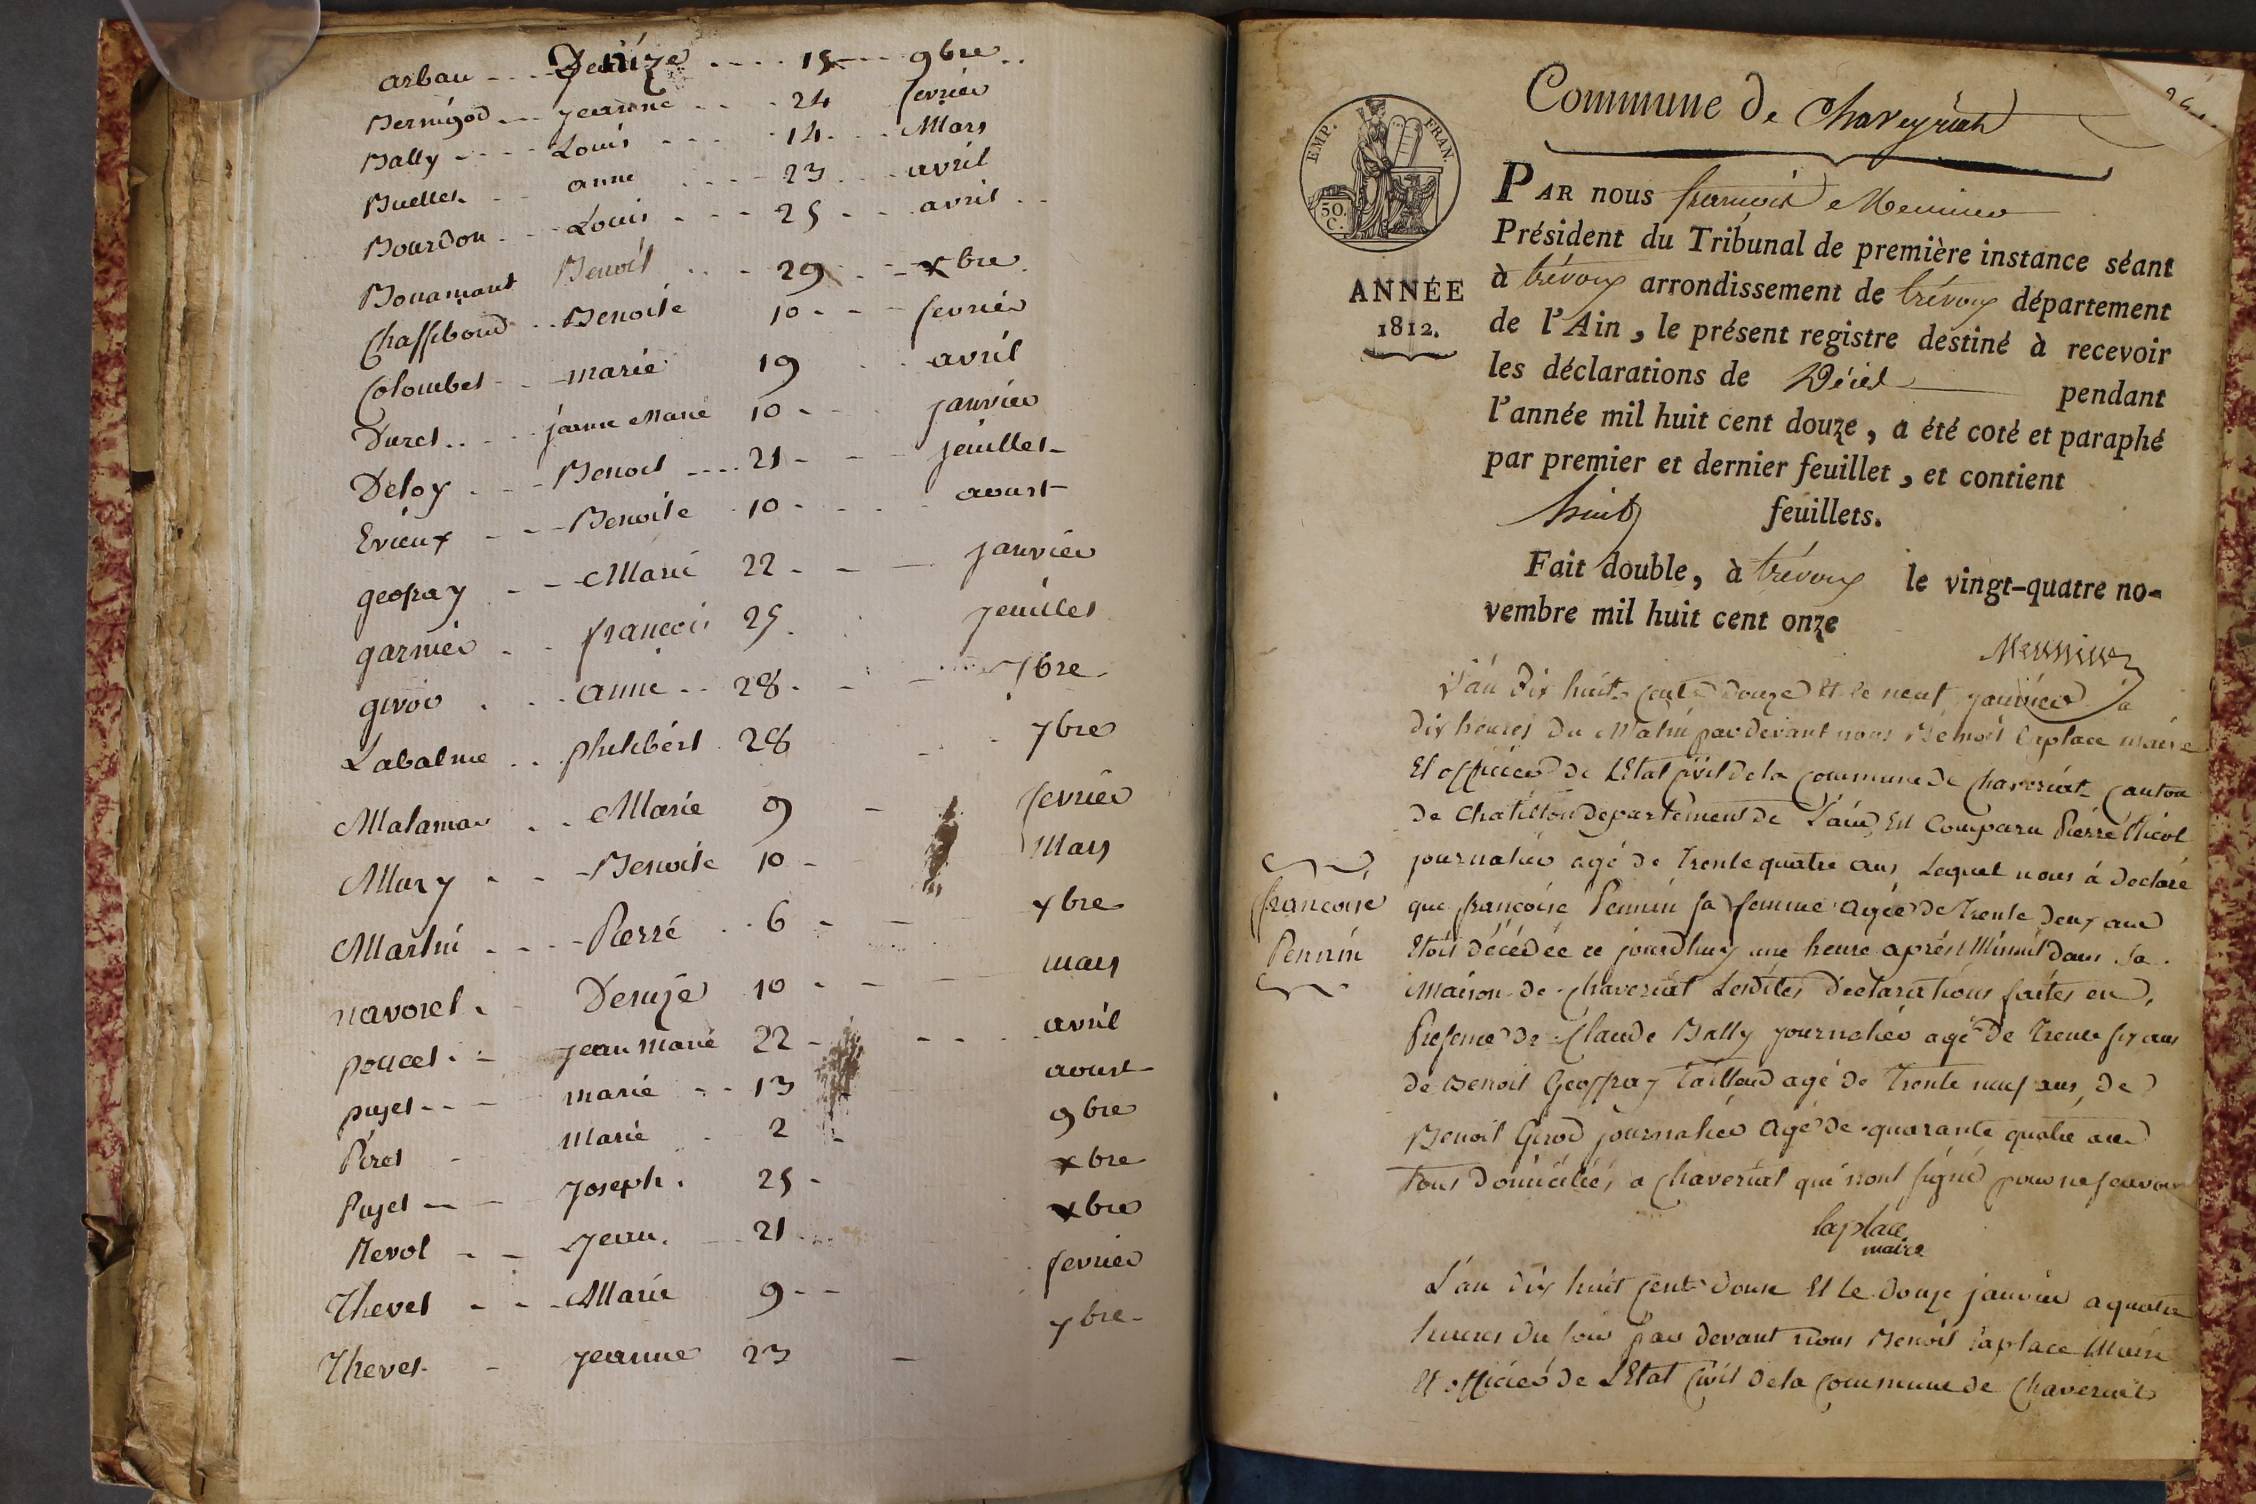 arban Denize 15 9bre
Bernigod jeanne 24 fevrier
Bally Louis 14 Mars
Buellet anne 23 avril
Bourdon Louis 25 avril
Bonamant Benoit 29 xbre
Chassiboud Benoite 10 fevrier
Colombet marie 19 avril
Duret janne Marie 10 janvier
Deloy Benoit 21 jeuillet
Evieux Benoite 10 aoust
geofray Marie 22 janvier
garnier françois 25 jeuillet
girod anne 28 7bre
Labalme philibert 28 7bre
Malamar Marie 9 fevrier
Mury Benoite 10 Mars
Martin Pierre 6 7bre
navoret Denize 10 mars
poncet jean Marie 22 avril
pujet marie 13 aoust
Péret Marie 2 9bre
Pujet Joseph 25 xbre
Revol jean 21 xbre
Thevet Marie 9 fevrier
Thevet jeanne 23 7bre
Commune de Chaveyriat
EMP. FRAN.
50. C.
ANNÉE
1812.
PAR nous françois Meunier
Président du Tribunal de première instance séant
à trévoux arrondissement de trévoux département
de l'Ain, le présent registre destiné à recevoir
les déclarations de Décès pendant
l'année mil huit cent douze, a été coté et paraphé
par premier et dernier feuillet, et contient
huit feuillets.
Fait double, à trévoux le vingt-quatre no-
vembre mil huit cent onze
Meunier
L'an dix huit cent douze Et le neuf janvier à
dix heures du Matin par devant nous Benoit Laplace maire
Et officier de L'Etat Civil de la commune de Chaveriat canton
de Chatillon departement de L'ain Est Comparu Pierre Nicol
journalier agé de Trente quatre ans Lequel nous a declaré
que françoise Pennin sa femme agée de Trente deux ans
Etoit décédée ce jourdhuy une heure après Minuit dans sa
françoise
Pennin
Maison de Chaveriat Lesdites Déclarations faites en
Presence de Claude Bally journalier agé de Trente six ans
de Benoit Geoffray Tailleur agé de Trente neuf ans, de
Benoit Girod journalier Agé de quarante quatre ans
Tous Domiciliés a Chaveriat qui n'ont signé pour ne scavoir
laplace
maire
L'an dix huit cent douse Et le douze janvier a quatre
heures du soir par devant nous Benoit Laplace Maire
Et officier de L'Etat Civil de la commune de Chaveriat